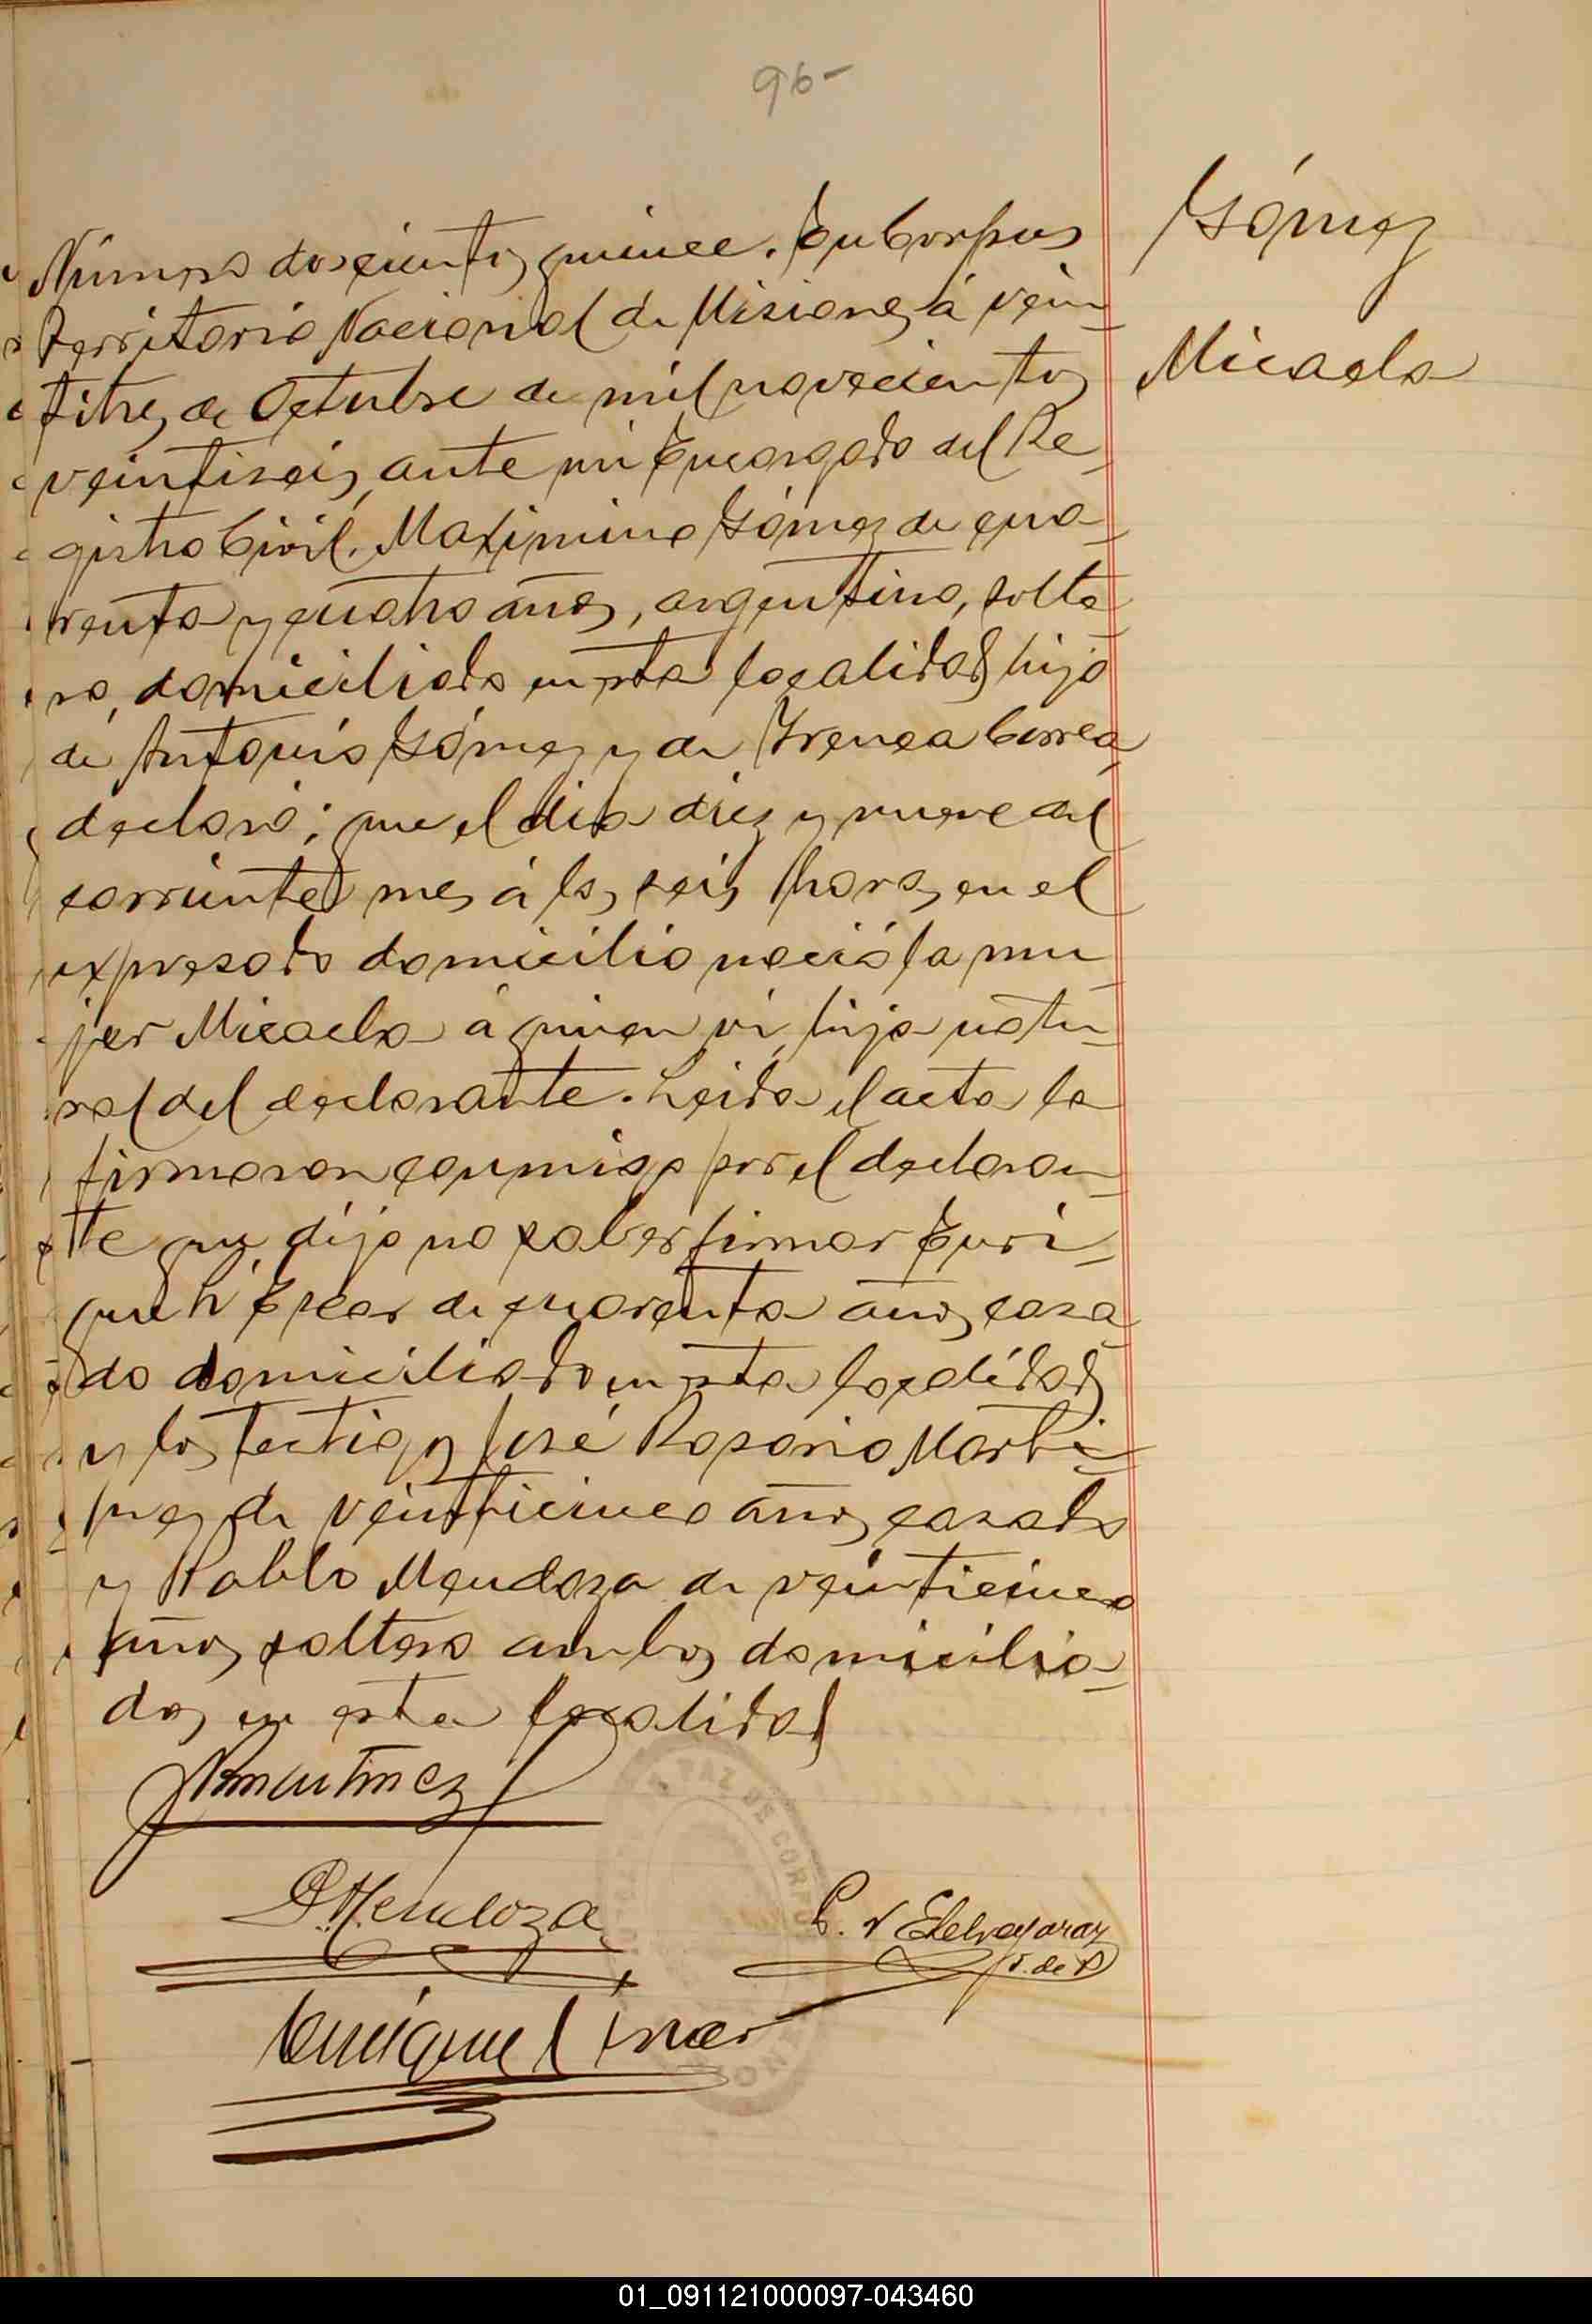 96-
Gómez
Micaela
Número doscientos quince. En Corpus
Territorio Nacional de Misiones, á vein
titres de Octubre de mil novecientos
veintiseis, ante mi Encargado del Re
gistro Civil. Maximino Gómez de cua
renta y cuatro años, argentino, solte
ro, domiciliado en esta localidad hijo
de Antonio Gómez y de Irenea Correa
declaró; que el dia diez y nueve del
corriente mes á las seis horas, en el
expresado domicilio nació la mu
jer Micaela á quien vi, hija natu
ral del declarante. Leida el acta la
firmaron conmigo por el declaran
te que dijo no saber firmar Enri
que de cuarenta años, casa
do domiciliado en esta localidad
y los testigos José Rosario Marti
nez de veinticinco años casado
y Pablo Mendoza de veinticinco
años, soltero ambos domicilia
dos en esta localidad
Martinez
P. Mendoza
Etchegaray
J. de P
Enrique
PAZ DE CORPUS
01_091121000097-043460